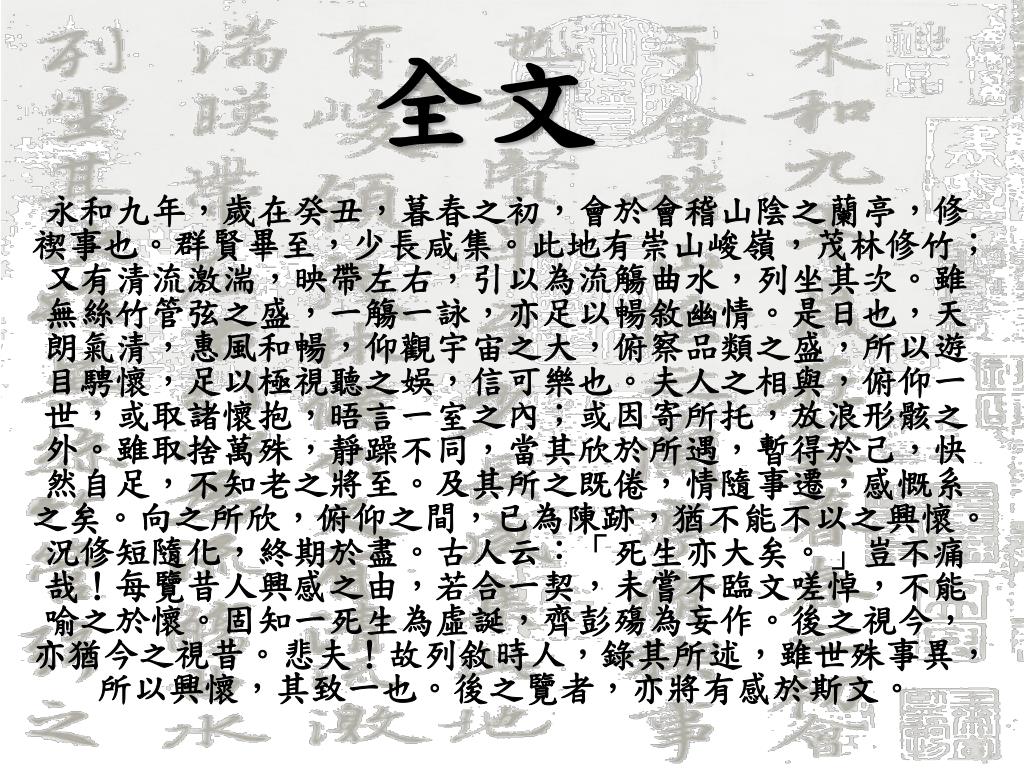 全文
永和九年，歲在癸丑，暮春之初，會於會稽山陰之蘭亭，修
禊事也。群賢畢至，少長咸集。此地有崇山峻嶺，茂林修竹；
又有清流激湍，映帶左右，引以為流觴曲水，列坐其次。雖
無絲竹管弦之盛，一觴一詠，亦足以暢敘幽情。是日也，天
朗氣清，惠風和暢，仰觀宇宙之大，俯察品類之盛，所以遊
目騁懷，足以極視聽之娛，信可樂也。夫人之相與，俯仰一
世，或取諸懷抱，晤言一室之內；或因寄所托，放浪形骸之
外。雖取捨萬殊，靜躁不同，當其欣於所遇，暫得於己，快
然自足，不知老之將至。及其所之既倦，情隨事遷，感慨系
之矣。向之所欣，俯仰之間，已為陳跡，猶不能不以之興懷。
況修短隨化，終期於盡。古人云：「死生亦大矣。」豈不痛
哉！每覽昔人興感之由，若合一契，未嘗不臨文嗟悼，不能
喻之於懷。固知一死生為虛誕，齊彭殤為妄作。後之視今，
亦猶今之視昔。悲夫！故列敘時人，錄其所述，雖世殊事異，
所以興懷，其致一也。後之覽者，亦將有感於斯文。